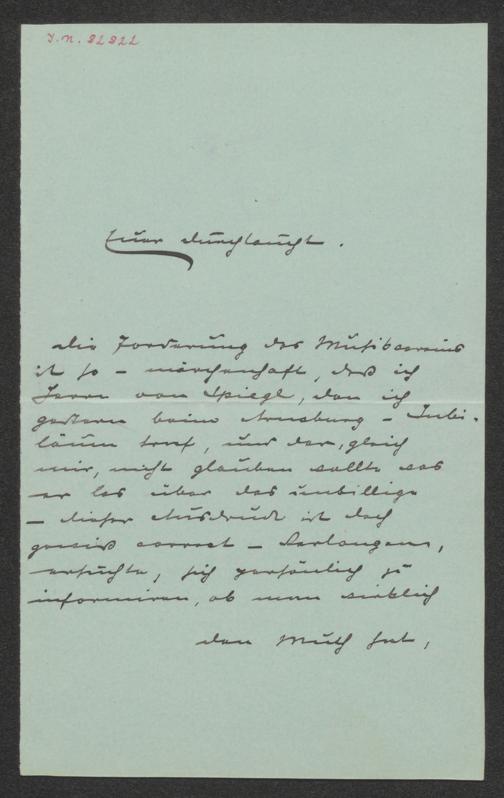 J.N. 82822
Euer Durchlaucht.
Die Forderung des Musikvereins
ist so – märchenhaft, daß ich
Herrn von Spiegl, den ich
gestern beim Arneburg – Jubi-
läum traf, und der, gleich
mir, nicht glauben wollte was
er las über das unbillige
– dieser Ausdruck ist doch
gewiß correct – Verlangen,
ersuchte, sich persönlich zu
informiren, ob man wirklich
den Muth hat,